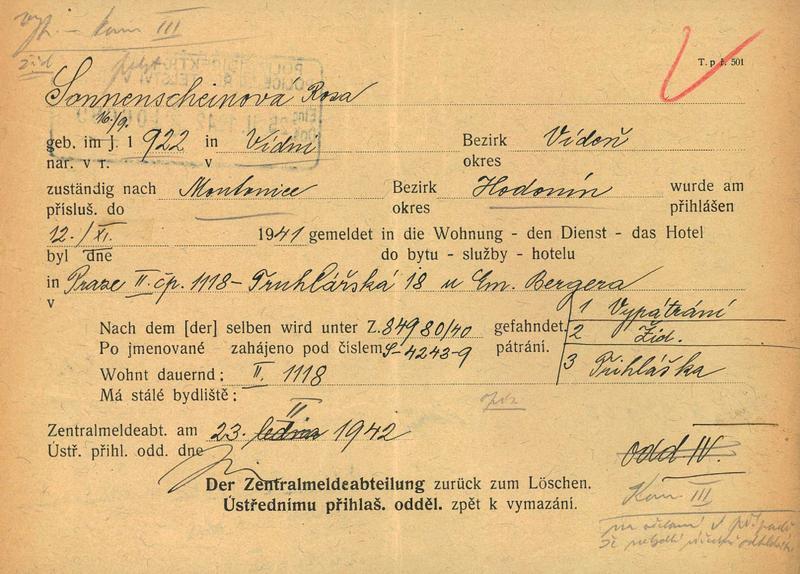 vyř. - kom III
žid
T. p. ř. 501
Sonnenscheinová Rosa
16./9.
geb. im j. 1 922 in Vídni Bezirk Vídeň
nar. v r. v okres
zuständig nach Montonice Bezirk Hodonín wurde am
přísluš. do okres přihlášen
12./XI. 1941 gemeldet in die Wohnung - den Dienst - das Hotel
byl dne do bytu - služby - hotelu
in Praze II. čp. 1118 - Truhlářská 18 u Em. Bergera
v
1 Vypátrání
Nach dem [der] selben wird unter Z. 84980/40 gefahndet. 2 Žid.
Po jmenované zahájeno pod číslem S-4243-9 pátrání. 3 Přihláška
Wohnt dauernd: II. 1118
Má stálé bydliště:
II
Zentralmeldeabt. am 23. ledna 1942
Ústř. přihl. odd. dne
odd IV.
Der Zentralmeldeabteilung zurück zum Löschen.
Ústřednímu přihlaš. odděl. zpět k vymazání.
Kom III